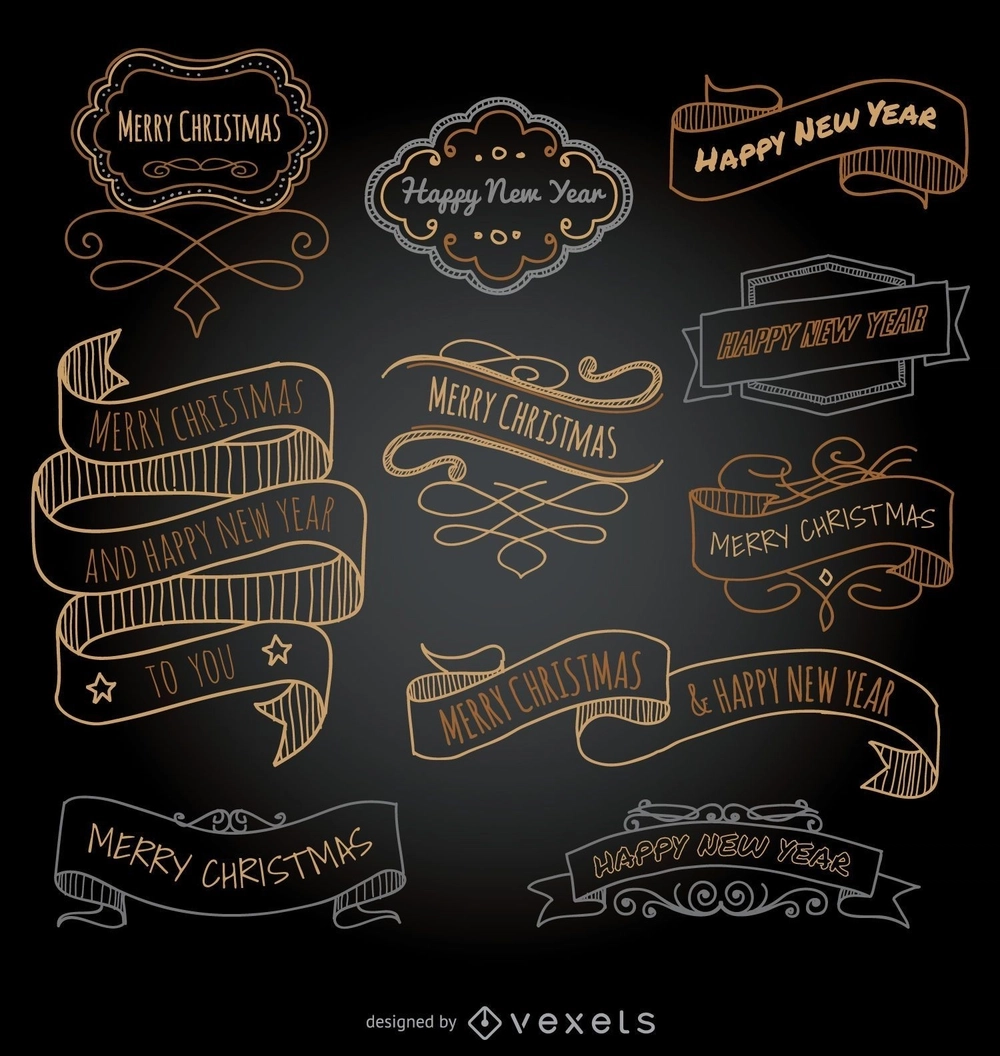 Merry Christmas
Happy New Year
Happy New Year
HAPPY NEW YEAR
MERRY CHRISTMAS
AND HAPPY NEW YEAR
TO YOU
Merry Christmas
MERRY CHRISTMAS
MERRY CHRISTMAS
& HAPPY NEW YEAR
MERRY CHRISTMAS
HAPPY NEW YEAR
designed by vexels